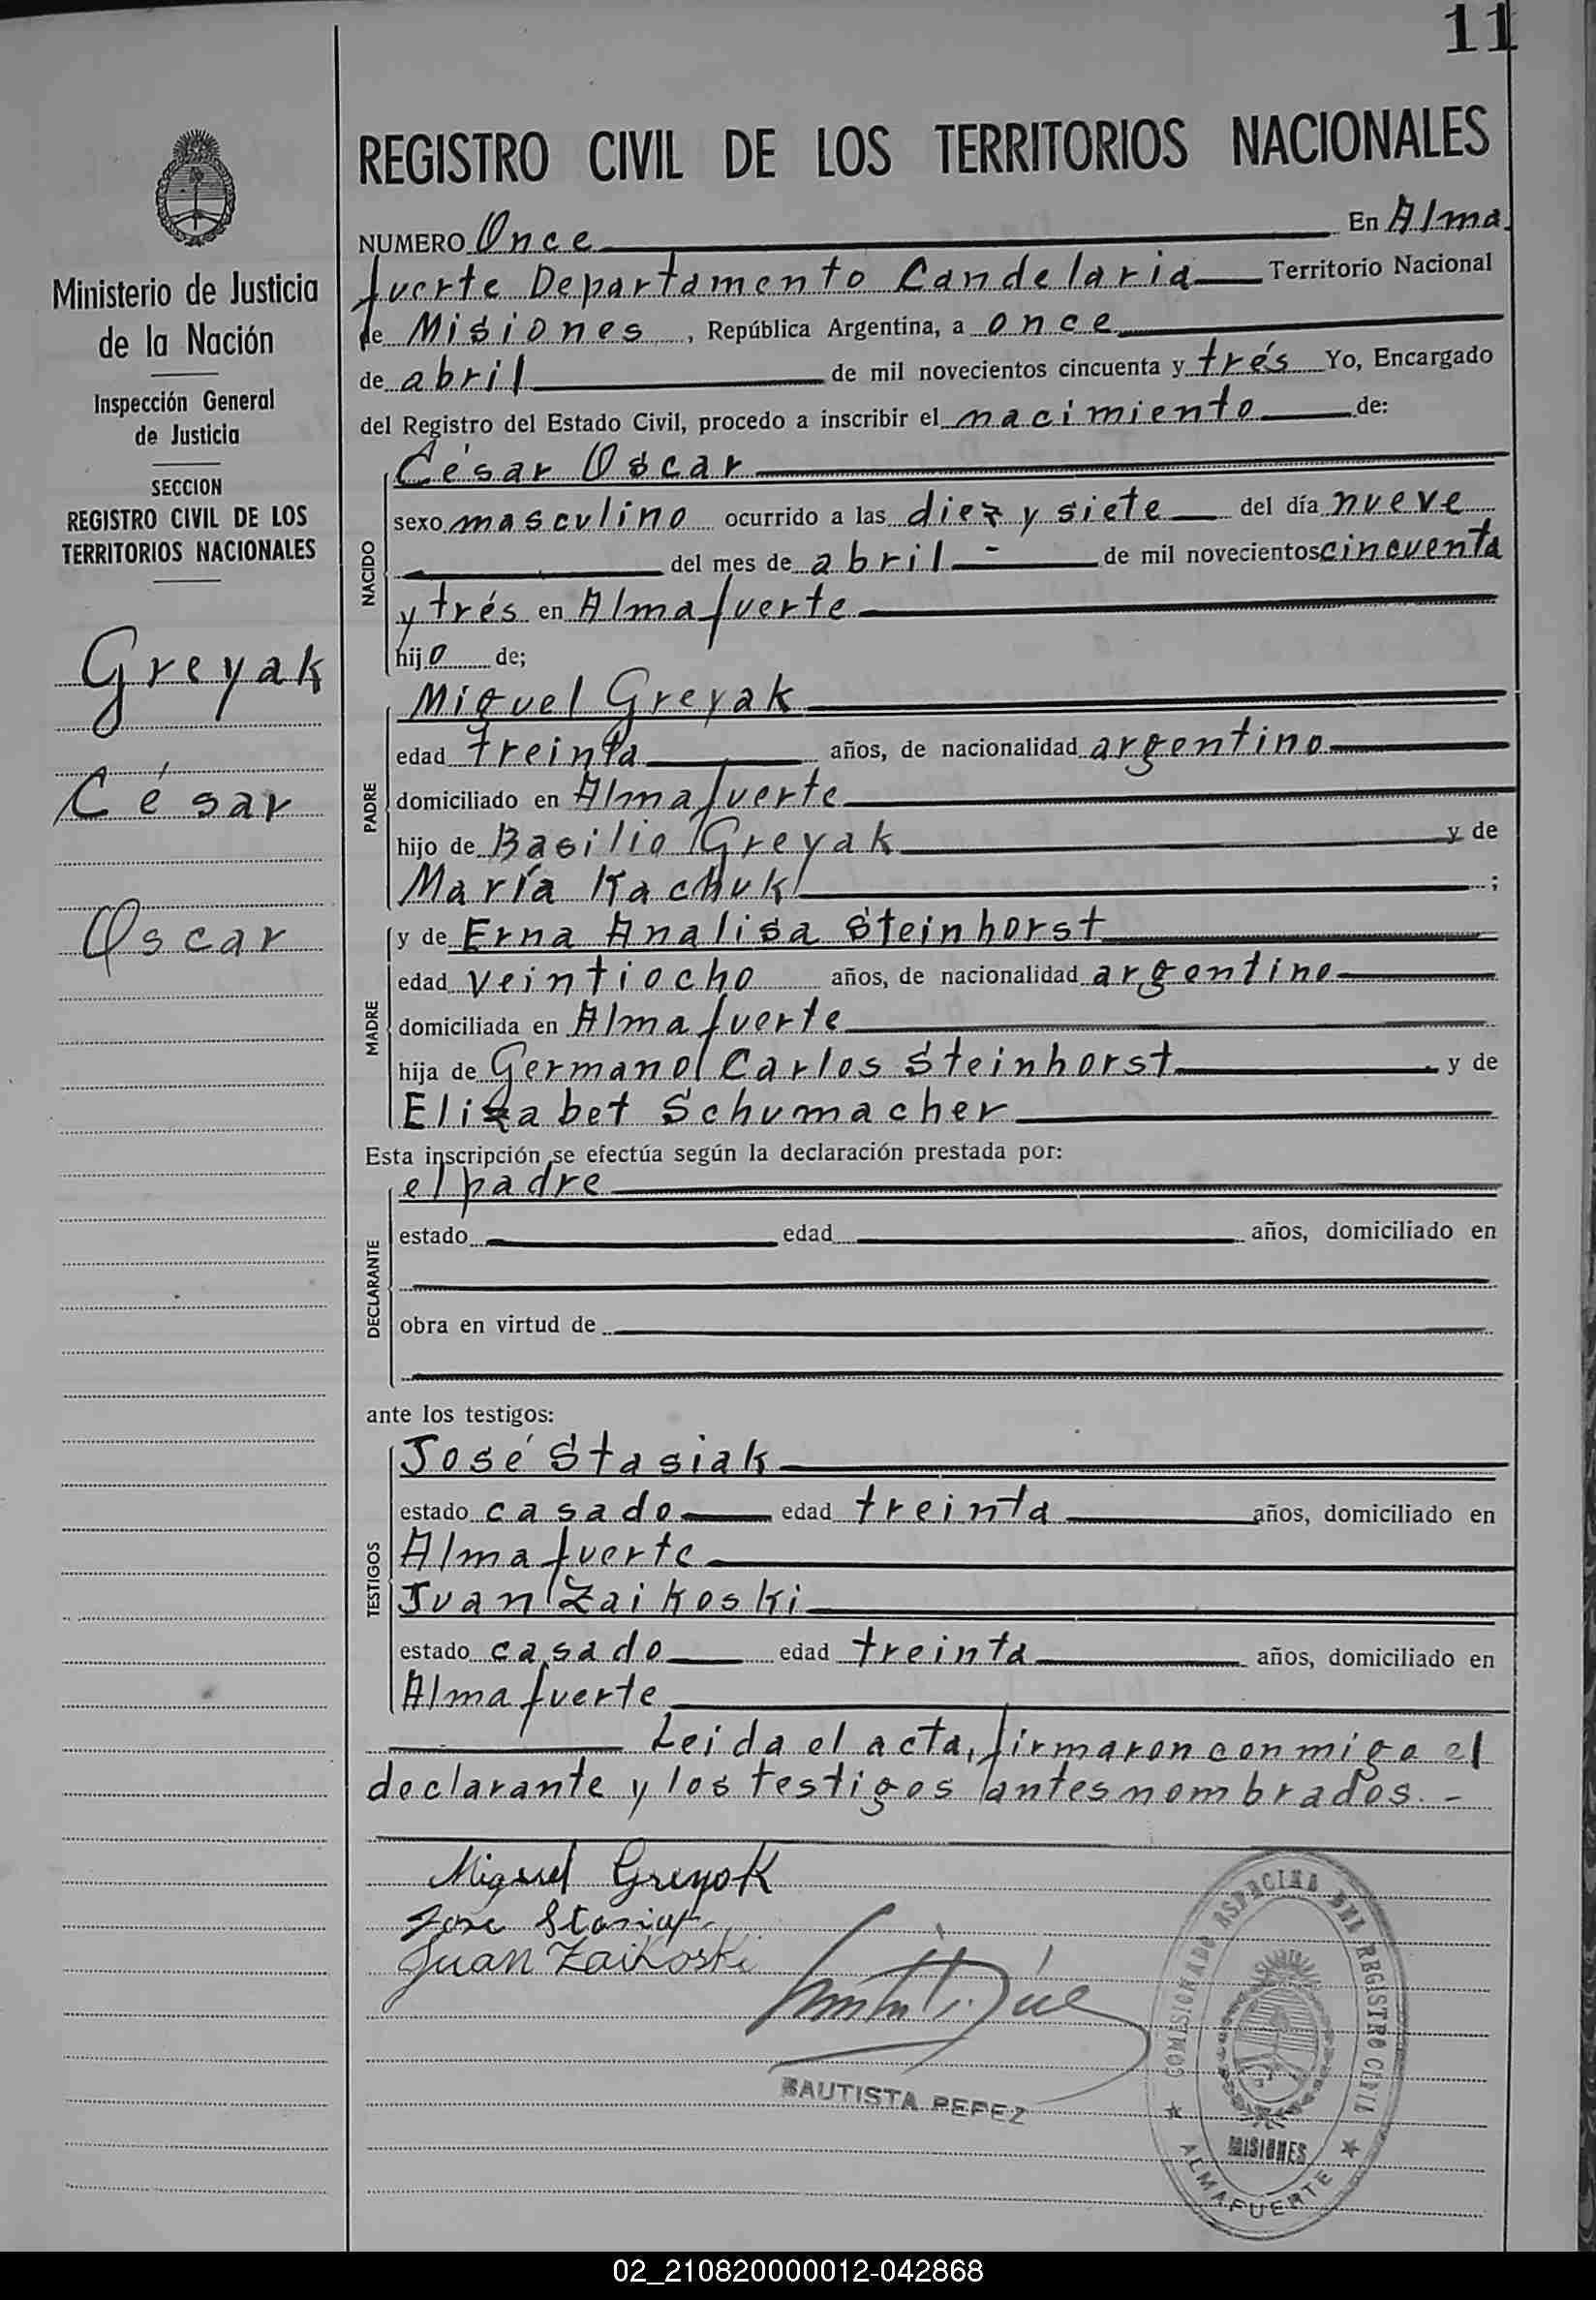 11
REGISTRO CIVIL DE LOS TERRITORIOS NACIONALES
NUMERO Once En Alma
fuerte Departamento Candelaria Territorio Nacional
de Misiones, República Argentina, a once
de abril de mil novecientos cincuenta y trés Yo, Encargado
del Registro del Estado Civil, procedo a inscribir el nacimiento de:
César Oscar
sexo masculino ocurrido a las diez y siete del día nueve
del mes de abril - de mil novecientos cincuenta
y trés en Almafuerte
hijo de;
NACIDO
Miguel Greyak
edad treinta años, de nacionalidad argentino
domiciliado en Almafuerte
hijo de Basilio Greyak y de
María Kachuk ;
PADRE
y de Erna Analisa Steinhorst
edad veintiocho años, de nacionalidad argentino
domiciliada en Almafuerte
hija de Germano Carlos Steinhorst y de
Elizabet Schumacher
MADRE
Esta inscripción se efectúa según la declaración prestada por:
el padre
estado edad años, domiciliado en
obra en virtud de
DECLARANTE
ante los testigos:
José Stasiak
estado casado edad treinta años, domiciliado en
Almafuerte
Juan Zaikoski
estado casado edad treinta años, domiciliado en
Almafuerte
TESTIGOS
Leida el acta, firmaron conmigo el
declarante y los testigos antes nombrados. -
Miguel Greyak
José Stasiak
Juan Zaikoski
BAUTISTA PEREZ
DEL REGISTRO CIVIL
MISIONES
ALMAFUERTE
Ministerio de Justicia
de la Nación
Inspección General
de Justicia
SECCION
REGISTRO CIVIL DE LOS
TERRITORIOS NACIONALES
Greyak
César
Oscar
02_210820000012-042868